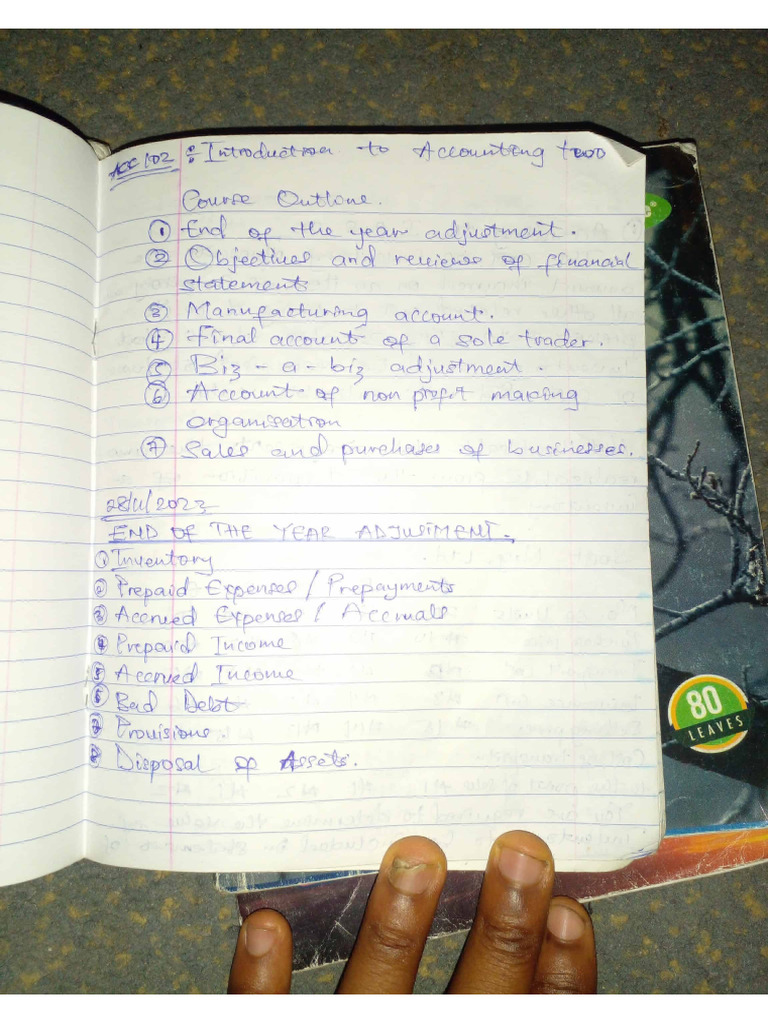 ACC 102 : Introduction to Accounting two
Course Outline.
① End of the year adjustment.
② Objectives and reviews of financial
statements
③ Manufacturing account.
④ Final account of a sole trader.
⑤ Biz-a-biz adjustment.
⑥ Account of non profit making
organisation
⑦ Sales and purchases of businesses.
28/11/2023
END OF THE YEAR ADJUSTMENT.
① Inventory
② Prepaid Expenses / Prepayments
③ Accrued Expenses / Accruals
④ Prepaid Income
⑤ Accrued Income
⑥ Bad Debt
⑦ Provisions.
⑧ Disposal of Assets.
80
LEAVES